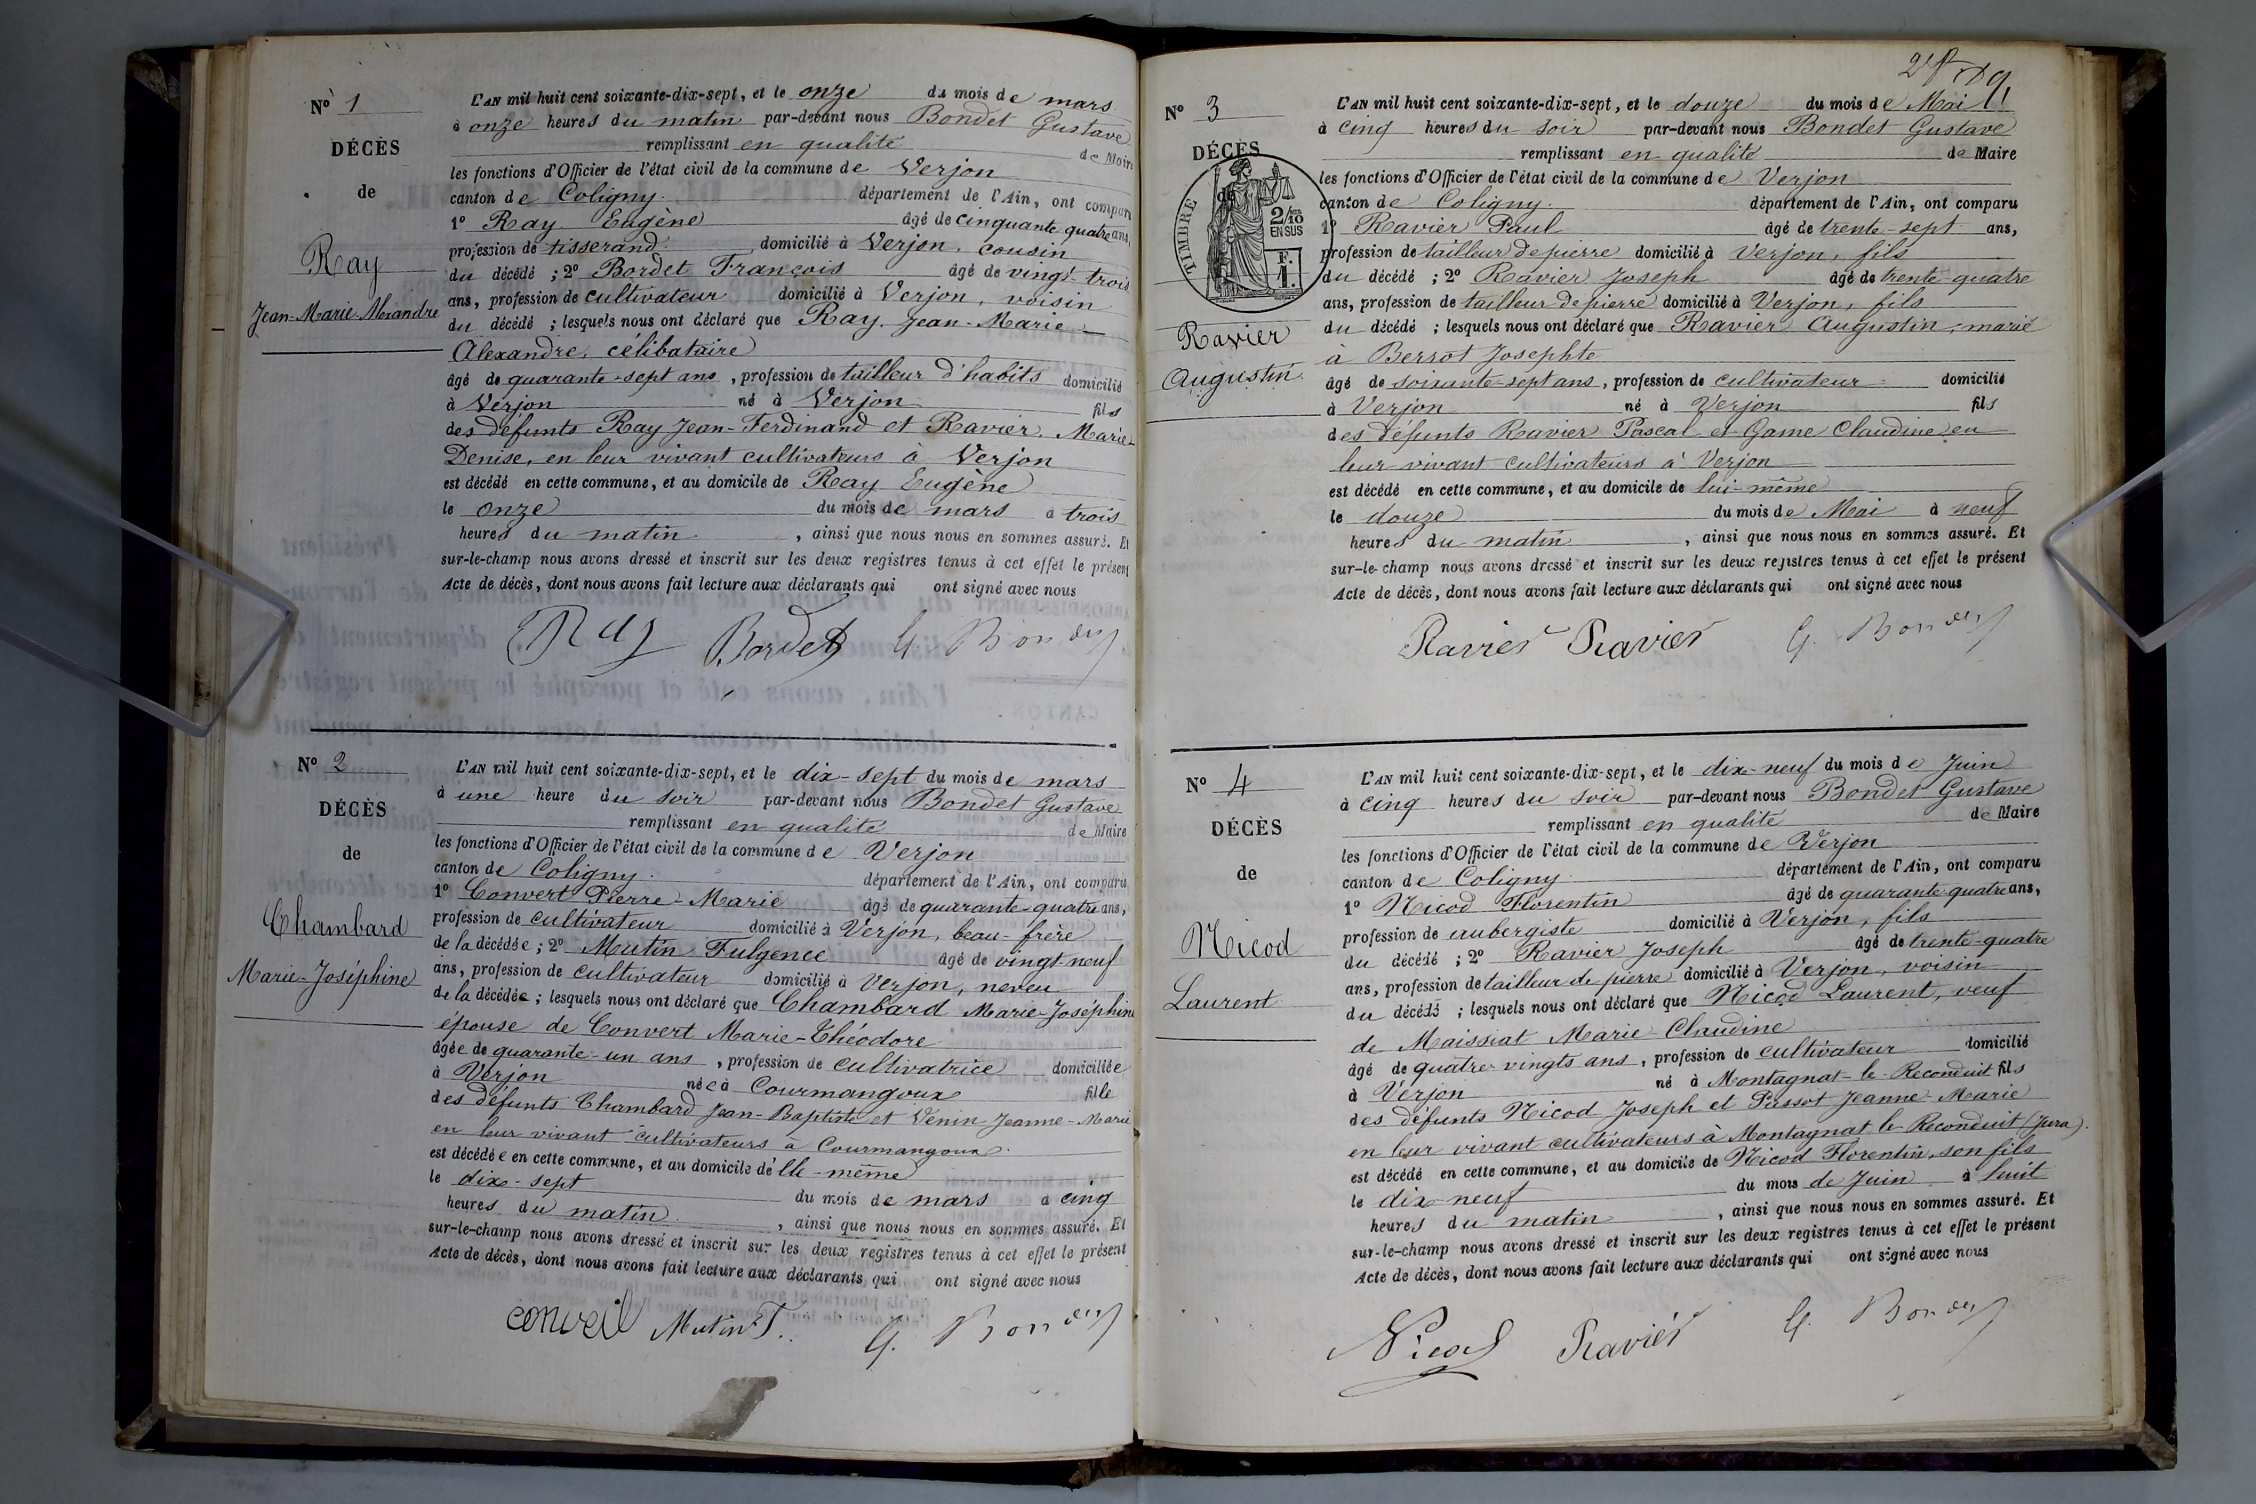 Nº 1
DÉCÈS
de
Ray
Jean-Marie-Alexandre
L'AN mil huit cent soixante-dix-sept, et le onze du mois de mars
à onze heures du matin par-devant nous Bondet Gustave
remplissant en qualité de Maire
les fonctions d'Officier de l'état civil de la commune de Verjon
canton de Coligny département de l'Ain, ont comparu
1º Ray Eugène âgé de cinquante quatre ans,
profession de tisserand domicilié à Verjon, cousin
du décédé ; 2º Bordet François âgé de vingt-trois
ans, profession de cultivateur domicilié à Verjon, voisin
du décédé ; lesquels nous ont déclaré que Ray Jean-Marie
Alexandre, célibataire
âgé de quarante-sept ans, profession de tailleur d'habits domicilié
à Verjon né à Verjon fils
des défunts Ray Jean-Ferdinand et Ravier Marie-
Denise, en leur vivant cultivateurs à Verjon
est décédé en cette commune, et au domicile de Ray Eugène
le onze du mois de mars à trois
heures du matin, ainsi que nous nous en sommes assuré. Et
sur-le-champ nous avons dressé et inscrit sur les deux registres tenus à cet effet le présent
Acte de décès, dont nous avons fait lecture aux déclarants qui ont signé avec nous
Ray Bordet G. Bondet
Nº 2
DÉCÈS
de
Chambard
Marie-Joséphine
L'AN mil huit cent soixante-dix-sept, et le dix-sept du mois de mars
à une heure du soir par-devant nous Bondet Gustave
remplissant en qualité de Maire
les fonctions d'Officier de l'état civil de la commune de Verjon
canton de Coligny département de l'Ain, ont comparu
1º Convert Pierre-Marie âgé de quarante-quatre ans,
profession de cultivateur domicilié à Verjon, beau-frère
de la décédée ; 2º Mutin Fulgence âgé de vingt neuf
ans, profession de cultivateur domicilié à Verjon, neveu
de la décédée ; lesquels nous ont déclaré que Chambard Marie-Joséphine
épouse de Convert Marie-Théodore
âgée de quarante-un ans, profession de cultivatrice domiciliée
à Verjon née à Courmangoux fille
des défunts Chambard Jean-Baptiste et Venin Jeanne-Marie
en leur vivant cultivateurs à Courmangoux
est décédée en cette commune, et au domicile d'elle-même
le dix-sept du mois de mars à cinq
heures du matin, ainsi que nous nous en sommes assuré. Et
sur-le-champ nous avons dressé et inscrit sur les deux registres tenus à cet effet le présent
Acte de décès, dont nous avons fait lecture aux déclarants qui ont signé avec nous
Mutin F. G. Bondet
Nº 3
DÉCÈS
de
TIMBRE
2/10
EN SUS
F.
1.
Ravier
Augustin
L'AN mil huit cent soixante-dix-sept, et le douze du mois de Mai
à cinq heures du soir par-devant nous Bondet Gustave
remplissant en qualité de Maire
les fonctions d'Officier de l'état civil de la commune de Verjon
canton de Coligny département de l'Ain, ont comparu
1º Ravier Paul âgé de trente-sept ans,
profession de tailleur de pierre domicilié à Verjon, fils
du décédé ; 2º Ravier Joseph âgé de trente-quatre
ans, profession de tailleur de pierre domicilié à Verjon, fils
du décédé ; lesquels nous ont déclaré que Ravier Augustin, marié
à Berrot Josephte
âgé de soixante-sept ans, profession de cultivateur domicilié
à Verjon né à Verjon fils
des défunts Ravier Pascal et Game Claudine en
leur vivant cultivateurs à Verjon
est décédé en cette commune, et au domicile de lui-même
le douze du mois de Mai à neuf
heures du matin, ainsi que nous nous en sommes assuré. Et
sur-le-champ nous avons dressé et inscrit sur les deux registres tenus à cet effet le présent
Acte de décès, dont nous avons fait lecture aux déclarants qui ont signé avec nous
Ravier Ravier G. Bondet
Nº 4
DÉCÈS
de
Nicod
Laurent
L'AN mil huit cent soixante-dix-sept, et le dix-neuf du mois de Juin
à cinq heures du soir par-devant nous Bondet Gustave
remplissant en qualité de Maire
les fonctions d'Officier de l'état civil de la commune de Verjon
canton de Coligny département de l'Ain, ont comparu
1º Nicod Florentin âgé de quarante-quatre ans,
profession de aubergiste domicilié à Verjon, fils
du décédé ; 2º Ravier Joseph âgé de trente-quatre
ans, profession de tailleur de pierre domicilié à Verjon, voisin
du décédé ; lesquels nous ont déclaré que Nicod Laurent, veuf
de Maissiat Marie-Claudine
âgé de quatre-vingts ans, profession de cultivateur domicilié
à Verjon né à Montagnat-le-Reconduit fils
des défunts Nicod Joseph et Passot Jeanne-Marie
en leur vivant cultivateurs à Montagnat le Reconduit (Jura).
est décédé en cette commune, et au domicile de Nicod Florentin, son fils
le dix-neuf du mois de Juin à huit
heures du matin, ainsi que nous nous en sommes assuré. Et
sur-le-champ nous avons dressé et inscrit sur les deux registres tenus à cet effet le présent
Acte de décès, dont nous avons fait lecture aux déclarants qui ont signé avec nous
Nicod Ravier G. Bondet